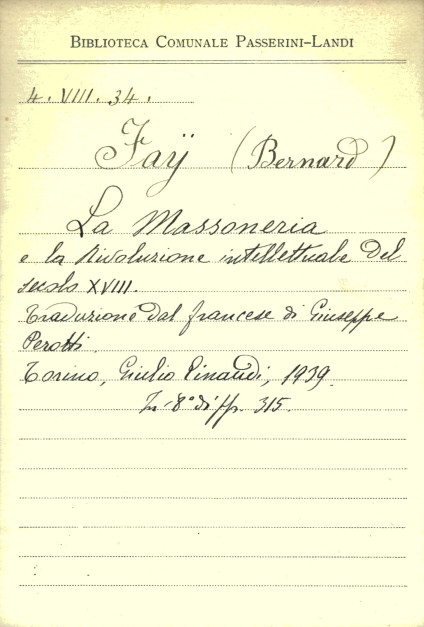 BIBLIOTECA COMUNALE PASSERINI-LANDI
4. VIII. 34.
Faÿ (Bernard)
La Massoneria
e la Rivoluzione intellettuale del
secolo XVIII.
Traduzione dal francese di Giuseppe
Perotti.
Torino, Giulio Einaudi, 1939.
In-8° di pp. 315.